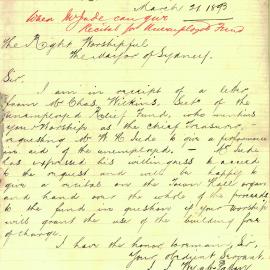 March 21 1893
When Mr Jude can give
Recital for Unemployed Fund
The Right Worshipful
The Mayor of Sydney.
Sir,
I am in receipt of a letter
from Mr Chas. Wilkins, Secty of the
Unemployed Relief Fund, who mentions
your Worship as the Chief Treasurer,
requesting Mr W. H. Jude to give a performance
in aid of the unemployed. - Mr Jude
has expressed his willingness to accede
to the request and will be happy to
give a recital on the Town Hall organ
and hand over the whole of the proceeds
to the fund in question if your Worship
will grant the use of the building free
of charge.
I have the honor to remain, Sir,
Your obedient Servant